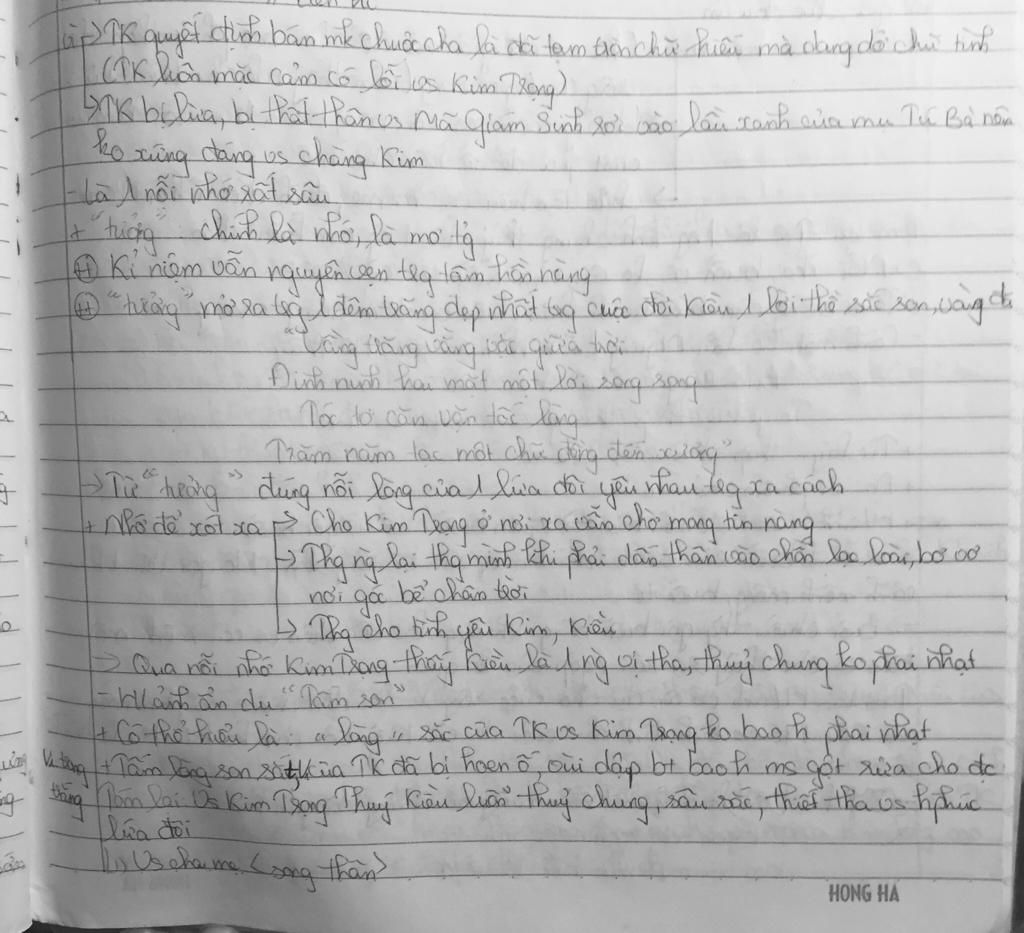 → TK quyết định bán mk chuộc cha là đã tạm tròn chữ hiếu mà dang dở chữ tình
(TK luôn mặc cảm có lỗi vs Kim Trọng)
→ TK bị lừa, bị thất thân vs Mã Giám Sinh rơi vào lầu xanh của mụ Tú Bà nên
ko xứng đáng vs chàng Kim
- Là 1 nỗi nhớ rất sâu
+ "tưởng" chính là nhớ, là mơ tg
⊕ Kỉ niệm vẫn nguyên vẹn trg tâm hồn nàng
⊕ "tưởng" mở ra trg 1 đêm trăng đẹp nhất trg cuộc đời Kiều 1 lời thề sắc son, vàng đá
"Vầng trăng vằng vặc giữa trời
Đinh ninh hai mặt một lời song song
Tóc tơ căn vặn tấc lòng
Trăm năm tạc một chữ đồng đến xương"
→ Từ "tưởng" đúng nỗi lòng của 1 lứa đôi yêu nhau trg xa cách
+ Nhớ để xót xa → Cho Kim Trọng ở nơi xa vẫn chờ mong tin nàng
→ Thg ng lại thg mình khi phải dấn thân vào chốn lạc loài, bơ vơ
nơi góc bể chân trời
→ Thg cho tình yêu Kim, Kiều
→ Qua nỗi nhớ Kim Trọng thấy Kiều là 1 ng vị tha, thuỷ chung ko phai nhạt
- H/ảnh ẩn dụ "Tấm son"
+ Có thể hiểu là: "lòng" sắc của TK vs Kim Trọng ko bao h phai nhạt
+ Tấm lòng son sắt của TK đã bị hoen ố, vùi dập bt bao h ms gột rửa cho đc
Tóm lại Vs Kim Trọng Thuý Kiều luôn thuỷ chung, sâu sắc, thiết tha vs hphúc
lứa đôi
Vs cha mẹ (song thân)
HONG HA